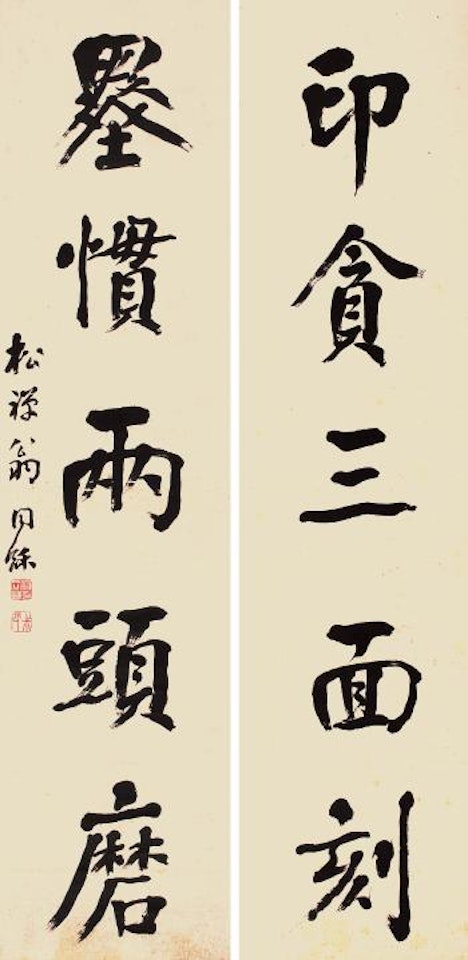 印貪三面刻
墨慣兩頭磨
松禪翁同龢